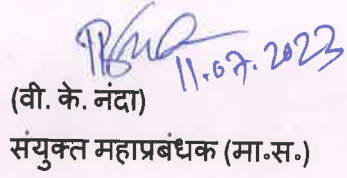 11.07.2023
(वी. के. नंदा)
संयुक्त महाप्रबंधक (मा॰स॰)